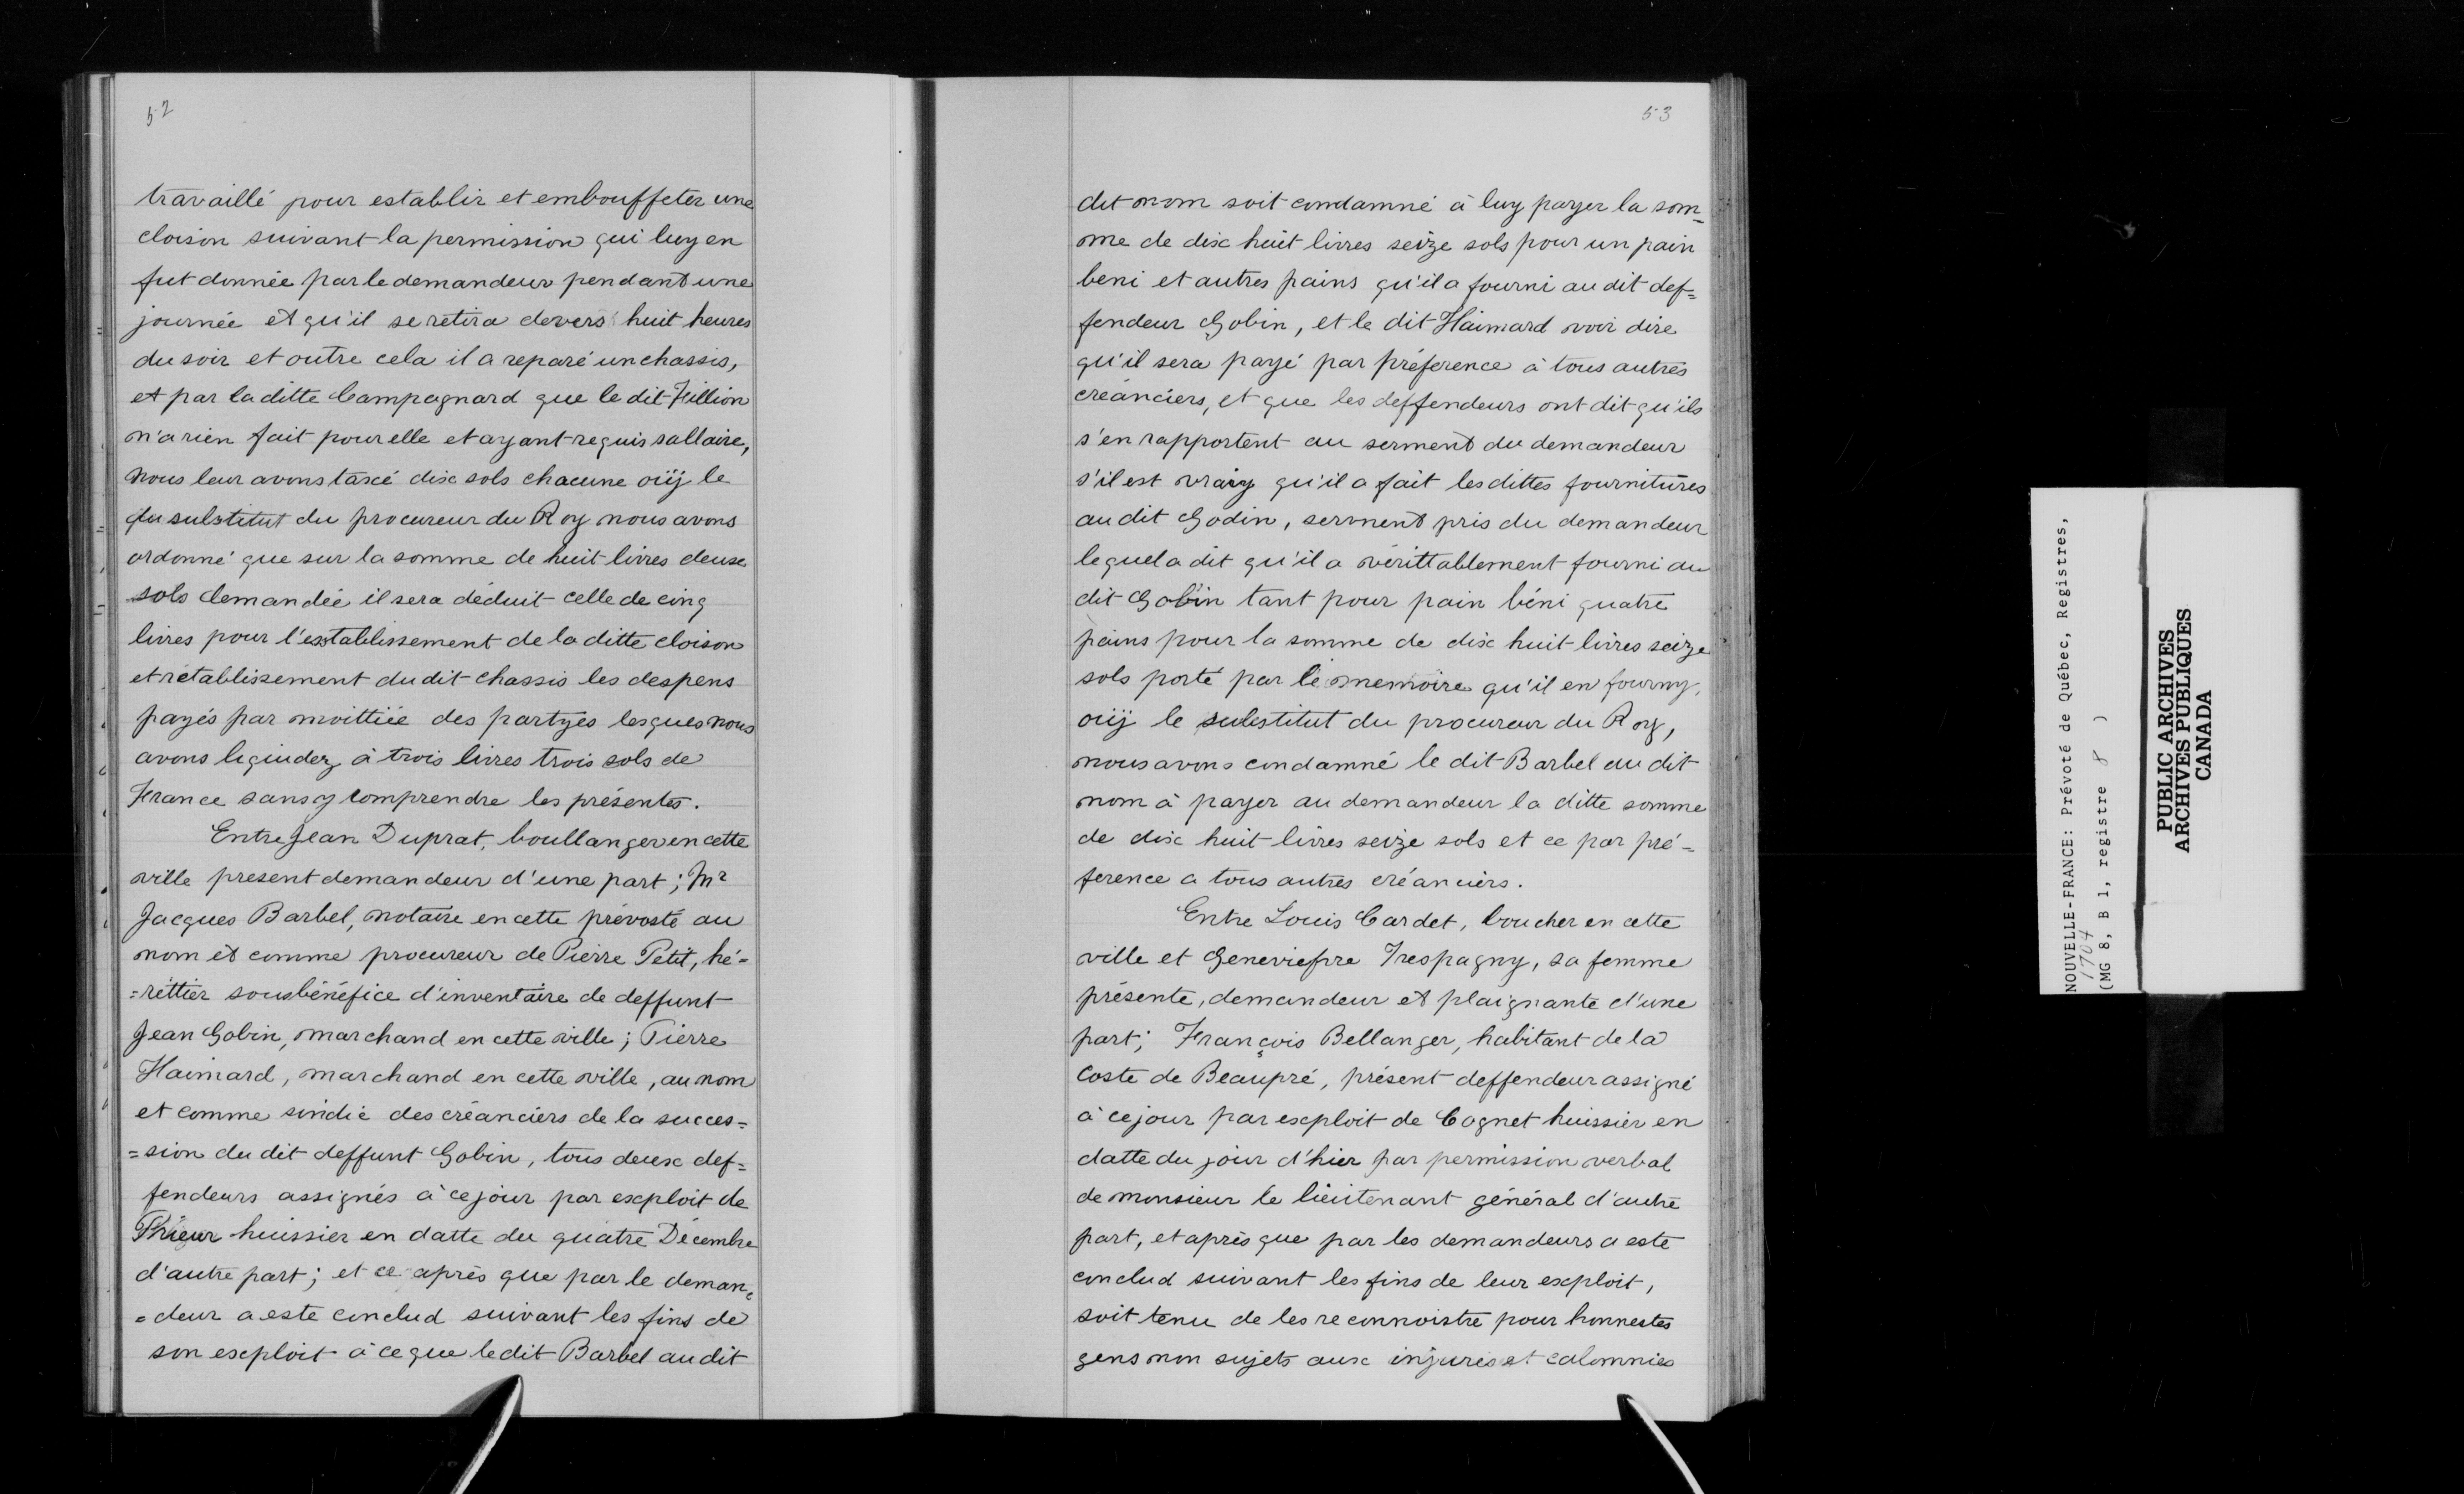 52
travaillé pour establir et embouffeter une
cloison suivant la permission qui luy en
fut donnée par le demandeur pendant une
journée et qu'il se retira devers huit heures
du soir et outre cela il a reparé un chassis,
et par la ditte Campagnard que le dit Fillion
n'a rien fait pour elle et ayant requis sallaire,
nous leur avons taxé dix sols chacune oüy le
du substitut du procureur du Roy nous avons
ordonné que sur la somme de huit livres deux
sols demandée il sera déduit celle de cinq
livres pour l'establissement de la ditte cloison
et rétablissement du dit chassis les despens
payés par moittiée des partyes lesques nous
avons liquidez à trois livres trois sols de
France sans y comprendre les présentes.
Entre Jean Duprat, boullanger en cette
ville present demandeur d'une part; Mr
Jacques Barbel, notaire en cette prévosté au
nom et comme procureur de Pierre Petit, hé=
=rittier sous bénéfice d'inventaire de deffunt
Jean Gobin, marchand en cette ville; Pierre
Haimard, marchand en cette ville, au nom
et comme sindic des créanciers de la succes=
=sion du dit deffunt Gobin, tous deux def=
fendeurs assignés à ce jour par exploit de
Prieur huissier en datte du quatre Décembre
d'autre part; et ce après que par le deman=
=deur a este conclud suivant les fins de
son exploit à ce que le dit Barbel au dit
53
dit nom soit condamné à luy payer la som=
me de dix huit livres seize sols pour un pain
beni et autres pains qu'il a fourni au dit def=
fendeur Gobin, et le dit Haimard voir dire
qu'il sera payé par préference à tous autres
créanciers, et que les deffendeurs ont dit qu'ils
s'en rapportent au serment du demandeur
s'il est vray qu'il a fait les dittes fournitures
au dit Godin, serment pris du demandeur
lequel a dit qu'il a vérittablement fourni au
dit Gobin tant pour pain béni quatre
pains pour la somme de dix huit livres seize
sols porté par le memoire qu'il en fourny,
oüy le substitut du procureur du Roy,
nous avons condamné le dit Barbel au dit
nom à payer au demandeur la ditte somme
de dix huit livres seize sols et ce par pré=
ference a tous autres créanciers.
Entre Louis Cardet, boucher en cette
ville et Geneviefve Trespagny, sa femme
présente, demandeur et plaignante d'une
part; François Bellanger, habitant de la
Coste de Beaupré, présent deffendeur assigné
à ce jour par exploit de Cognet huissier en
datte du jour d'hier par permission verbal
de monsieur le lieutenant général d'autre
part, et après que par les demandeurs a este
conclud suivant les fins de leur exploit,
soit tenu de les reconnoistre pour honnestes
gens non sujets aux injures et calomnies
NOUVELLE-FRANCE: Prévoté de Québec, Registres,
1704
(MG 8, B 1, registre 8 )
PUBLIC ARCHIVES
ARCHIVES PUBLIQUES
CANADA